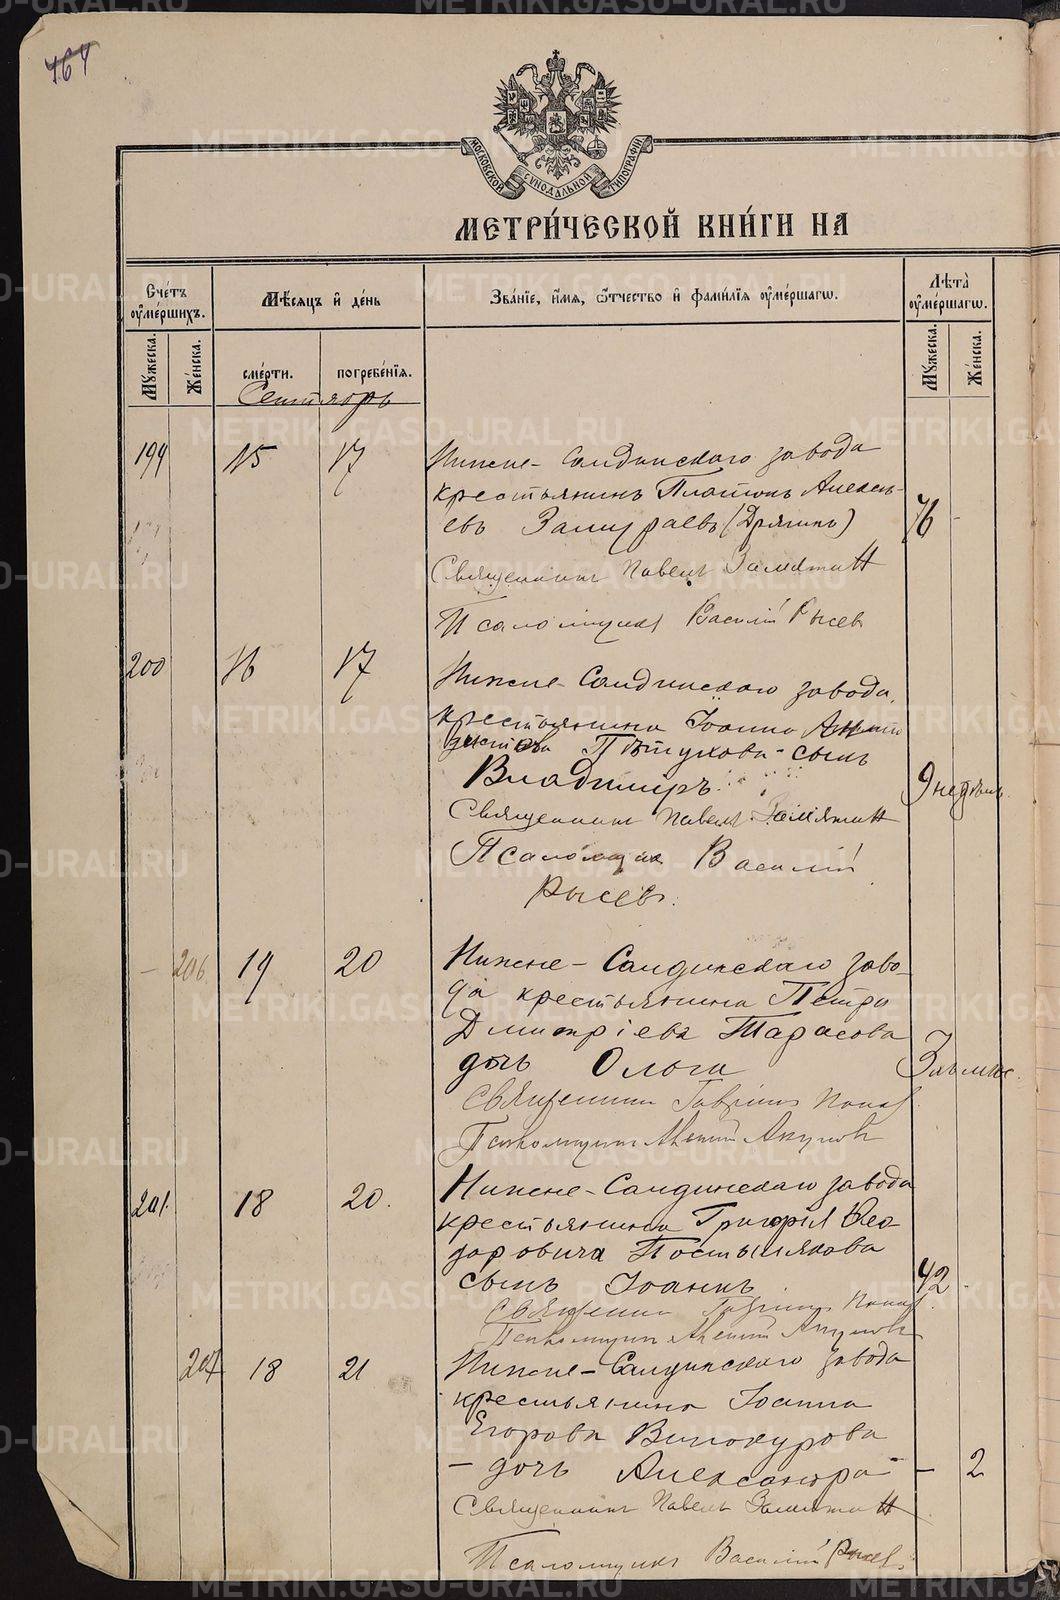 764
МОСКОВСКОЙ СѴНОДАЛЬНОЙ ТИПОГРАФІИ
МЕТРИ́ЧЕСКОЙ КНИ́ГИ НА
Сче́тъ ᲂу҆ме́ршихъ.
Мѣ́сяцъ и҆ де́нь
Зва́нїе, и҆́мя, ѻ҆́тчество и҆ фами́лїя ᲂу҆ме́ршагѡ.
Лѣ́та ᲂу҆ме́ршагѡ.
Му́жеска.
Же́нска.
сме́рти.
погребе́нїя.
Му́жеска.
Же́нска.
Сентябрь
199 15 17 Нижне-Салдинскаго завода
крестьянинъ Платонъ Алексѣ-
евъ Замураевъ (Дрягинъ) 76 -
Священникъ Павелъ Замятин
Псаломщикъ Василій Рысев
200 16 17 Нижне-Салдинскаго завода
крестьянина Іоанна
Пѣтухова сынъ
Владимиръ. 9 недѣль.
Священникъ Павелъ Замятин
Псаломщик Василій
Рысевъ.
- 206 19 20 Нижне-Салдинскаго заво-
да крестьянина Петра
Дмитріева Тарасова
дочь Ольга
Священникъ Гавріилъ Попов
Псаломщикъ Акуловъ
201. 18 20. Нижне-Салдинскаго завода
крестьянина Григорія Ѳео-
доровича Постылякова
сынъ Іоаннъ. 42 .
Священникъ Гавріилъ Попов.
Псаломщикъ Акуловъ
207 18 21 Нижне-Салдинскаго завода
крестьянина Іоанна
Егорова Винокурова
- дочь Александра - 2
Священникъ Павелъ Замятин
Псаломщикъ Василій Рысев
METRIKI.GASO-URAL.RU